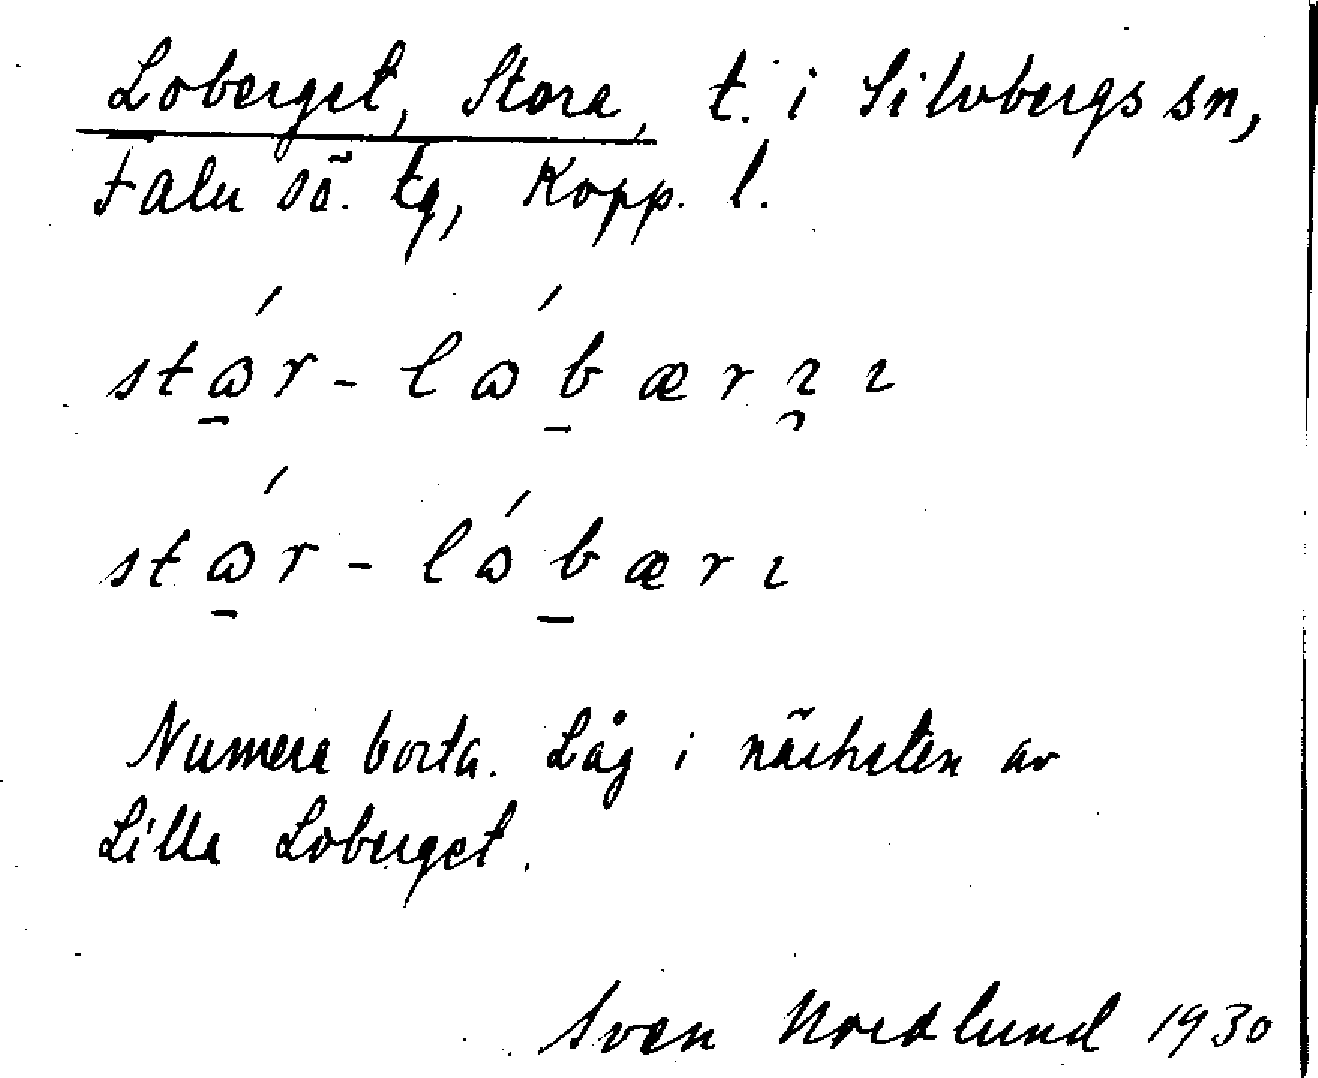 Loberget, Stora, t. i Silvbergs sn,
Falu sö. tg, Kopp. l.
stɷ̱́r - lɷ́ḇærɿ̯ ɿ
stɷ̱́r - lɷ́ḇærɿ
Numera borta. Låg i närheten av
Lilla Loberget.
Sven Nordlund 1930